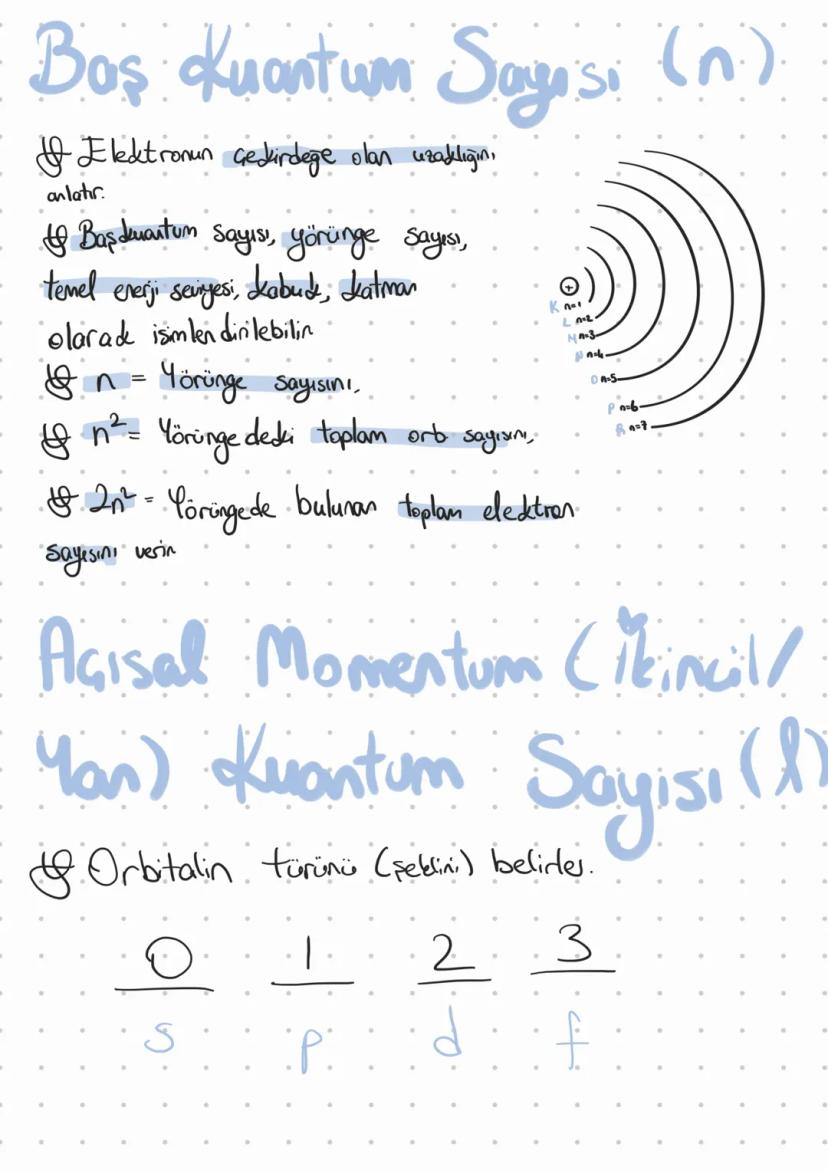 Baş Kuantum Sayısı (n)
Elektronun çekirdeğe olan uzaklığını
anlatır.
Başkuantum sayısı, yörünge sayısı,
temel enerji seviyesi, kabuk, katman
olarak isimlendirilebilir
n = Yörünge sayısını,
n² = Yörüngedeki toplam orb sayısını,
2n² = Yörüngede bulunan toplam elektron
sayısını verir
K n=1
L n=2
M n=3
N n=4
O n=5
P n=6
R n=7
Açısal Momentum (İkincil/
Yan) Kuantum Sayısı (l)
Orbitalin türünü (şeklini) belirler.
0 1 2 3
s p d f